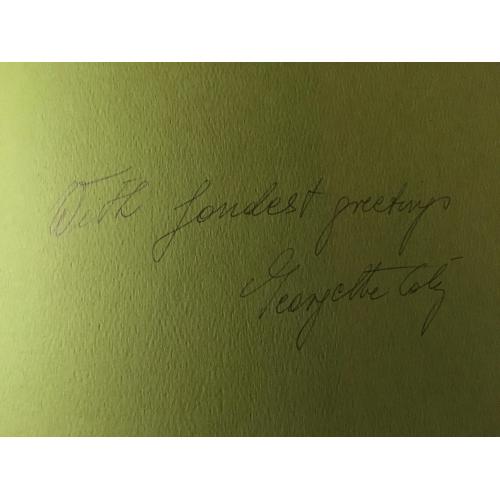 With fondest greetings
Georgette